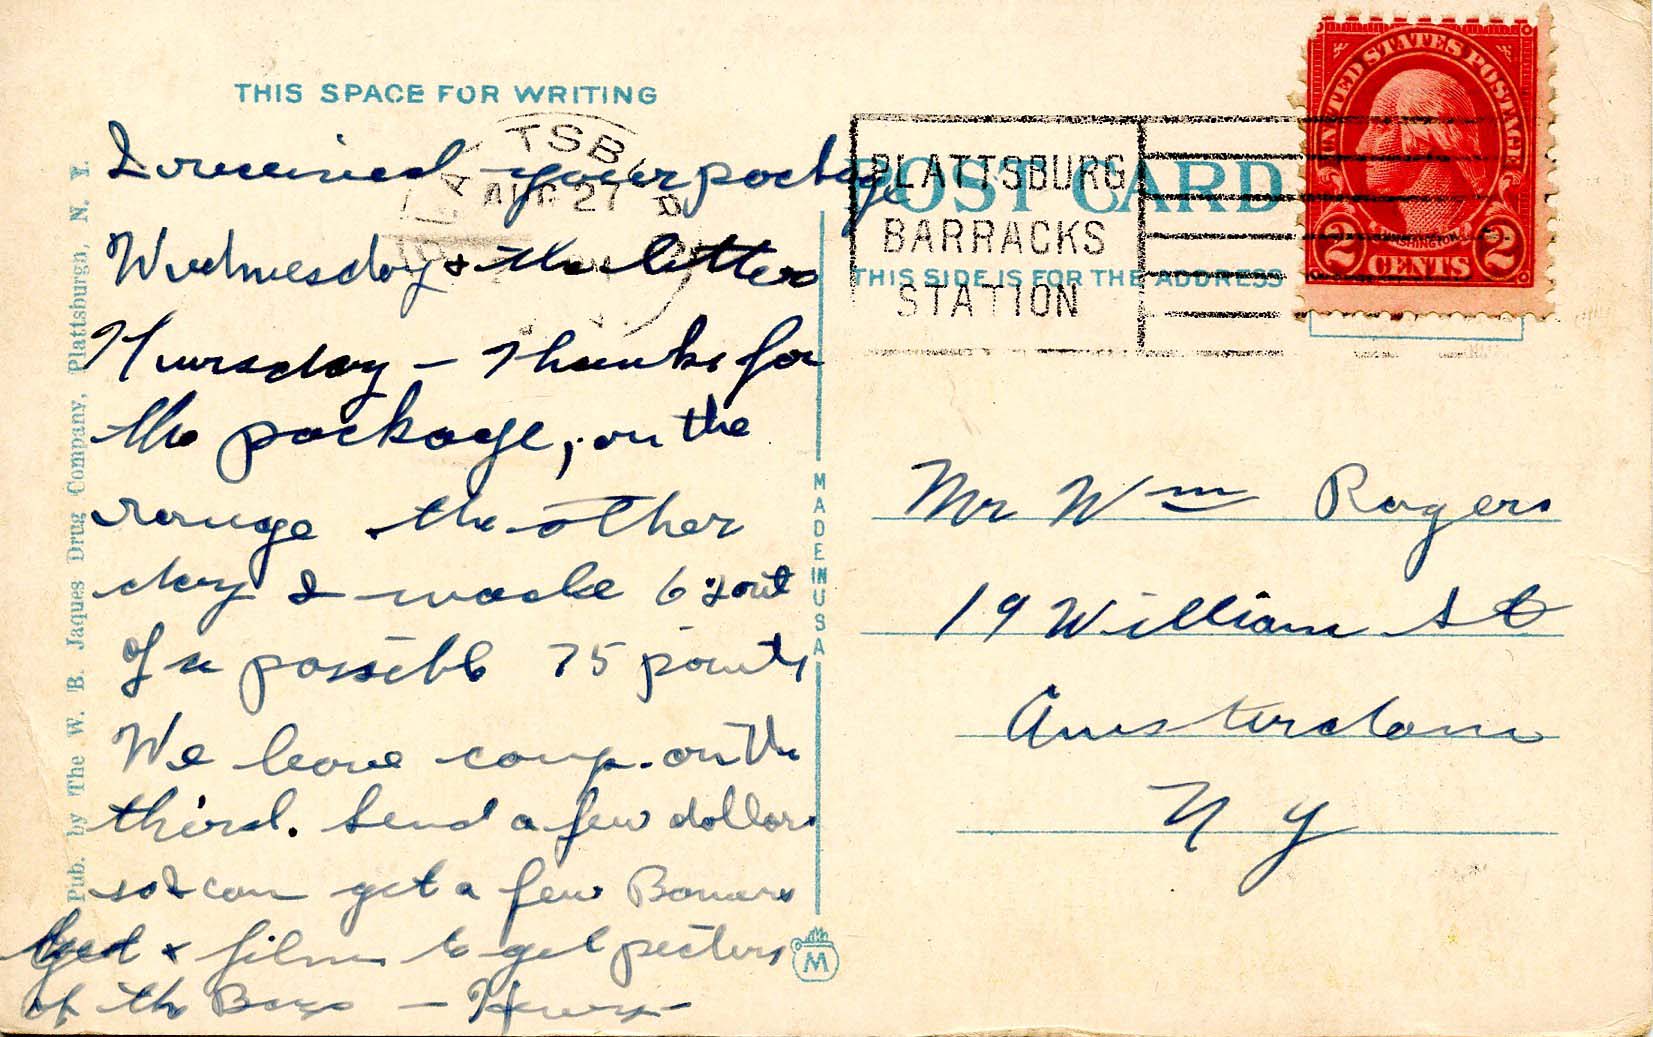 THIS SPACE FOR WRITING
I received your package
Wednesday & the letter
Thursday – Thanks for
the package, on the
range the other
day I made 62 out
of a possible 75 points
We leave camp on the
third. Send a few dollars
so I can get a few Banners
& films to get pictures
of the Boys – Henry –
Pub. by The W. B. Jaques Drug Company, Plattsburgh, N. Y.
MADE IN USA
M
AUG 27
PLATTSBURG
BARRACKS
STATION
POST CARD
THIS SIDE IS FOR THE ADDRESS
UNITED STATES POSTAGE
2 CENTS 2
Mr Wm Rogers
19 William St
Amsterdam
N Y